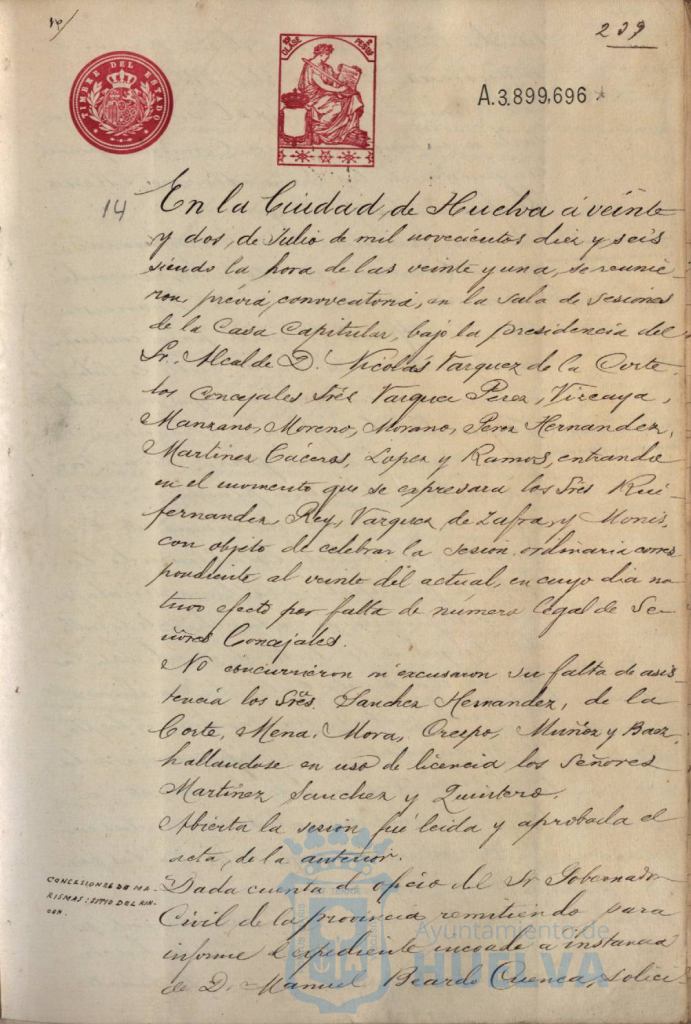 19/
239
TIMBRE DEL ESTADO
CLASE
PESETAS
A.3.899,696
14
En la Ciudad, de Huelva á veinte
y dos, de Julio de mil novecientos diez y seis
siendo la hora de las veinte y una, se reunie-
ron, prévia, convocatoria, en la sala de sesiones
de la Casa Capitular, bajo la presidencia del
Sr. Alcalde D. Nicolás Vazquez de la Corte
los Concejales Srés Vazquez Perez, Vizcaya,
Manzano, Moreno, Morano, Perez Hernandez,
Martinez Cáceres, Lopez y Ramos, entrando
en el momento que se expresará los Srés Rui-
fernandez, Rey, Vazquez de Zafra, y Monis,
con objeto de celebrar la sesion ordinaria corres
pondiente al veinte del actual, en cuyo dia no
tuvo efecto por falta de número legal de Se-
ñores Concejales.
No concurrieron ni excusaron su falta de asis-
tencia los Srés. Sanchez Hernandez, de la
Corte, Mena, Mora, Crespo, Muñoz y Baez,
hallandose en uso de licencia los Señores
Martinez Sanchez y Quintero.
Abierta la sesion fué leida y aprobada el
acta, de la anterior.
CONCESIONES DE MA-
RISMAS: SITIO DEL RIN-
CON.
Dada cuenta d oficio del Sr Gobernador
Civil de la provincia, remitiendo para
informe el expediente incoado a instancia
de D. Manuel Beardo Cuenca, solici
Ayuntamiento de
HUELVA